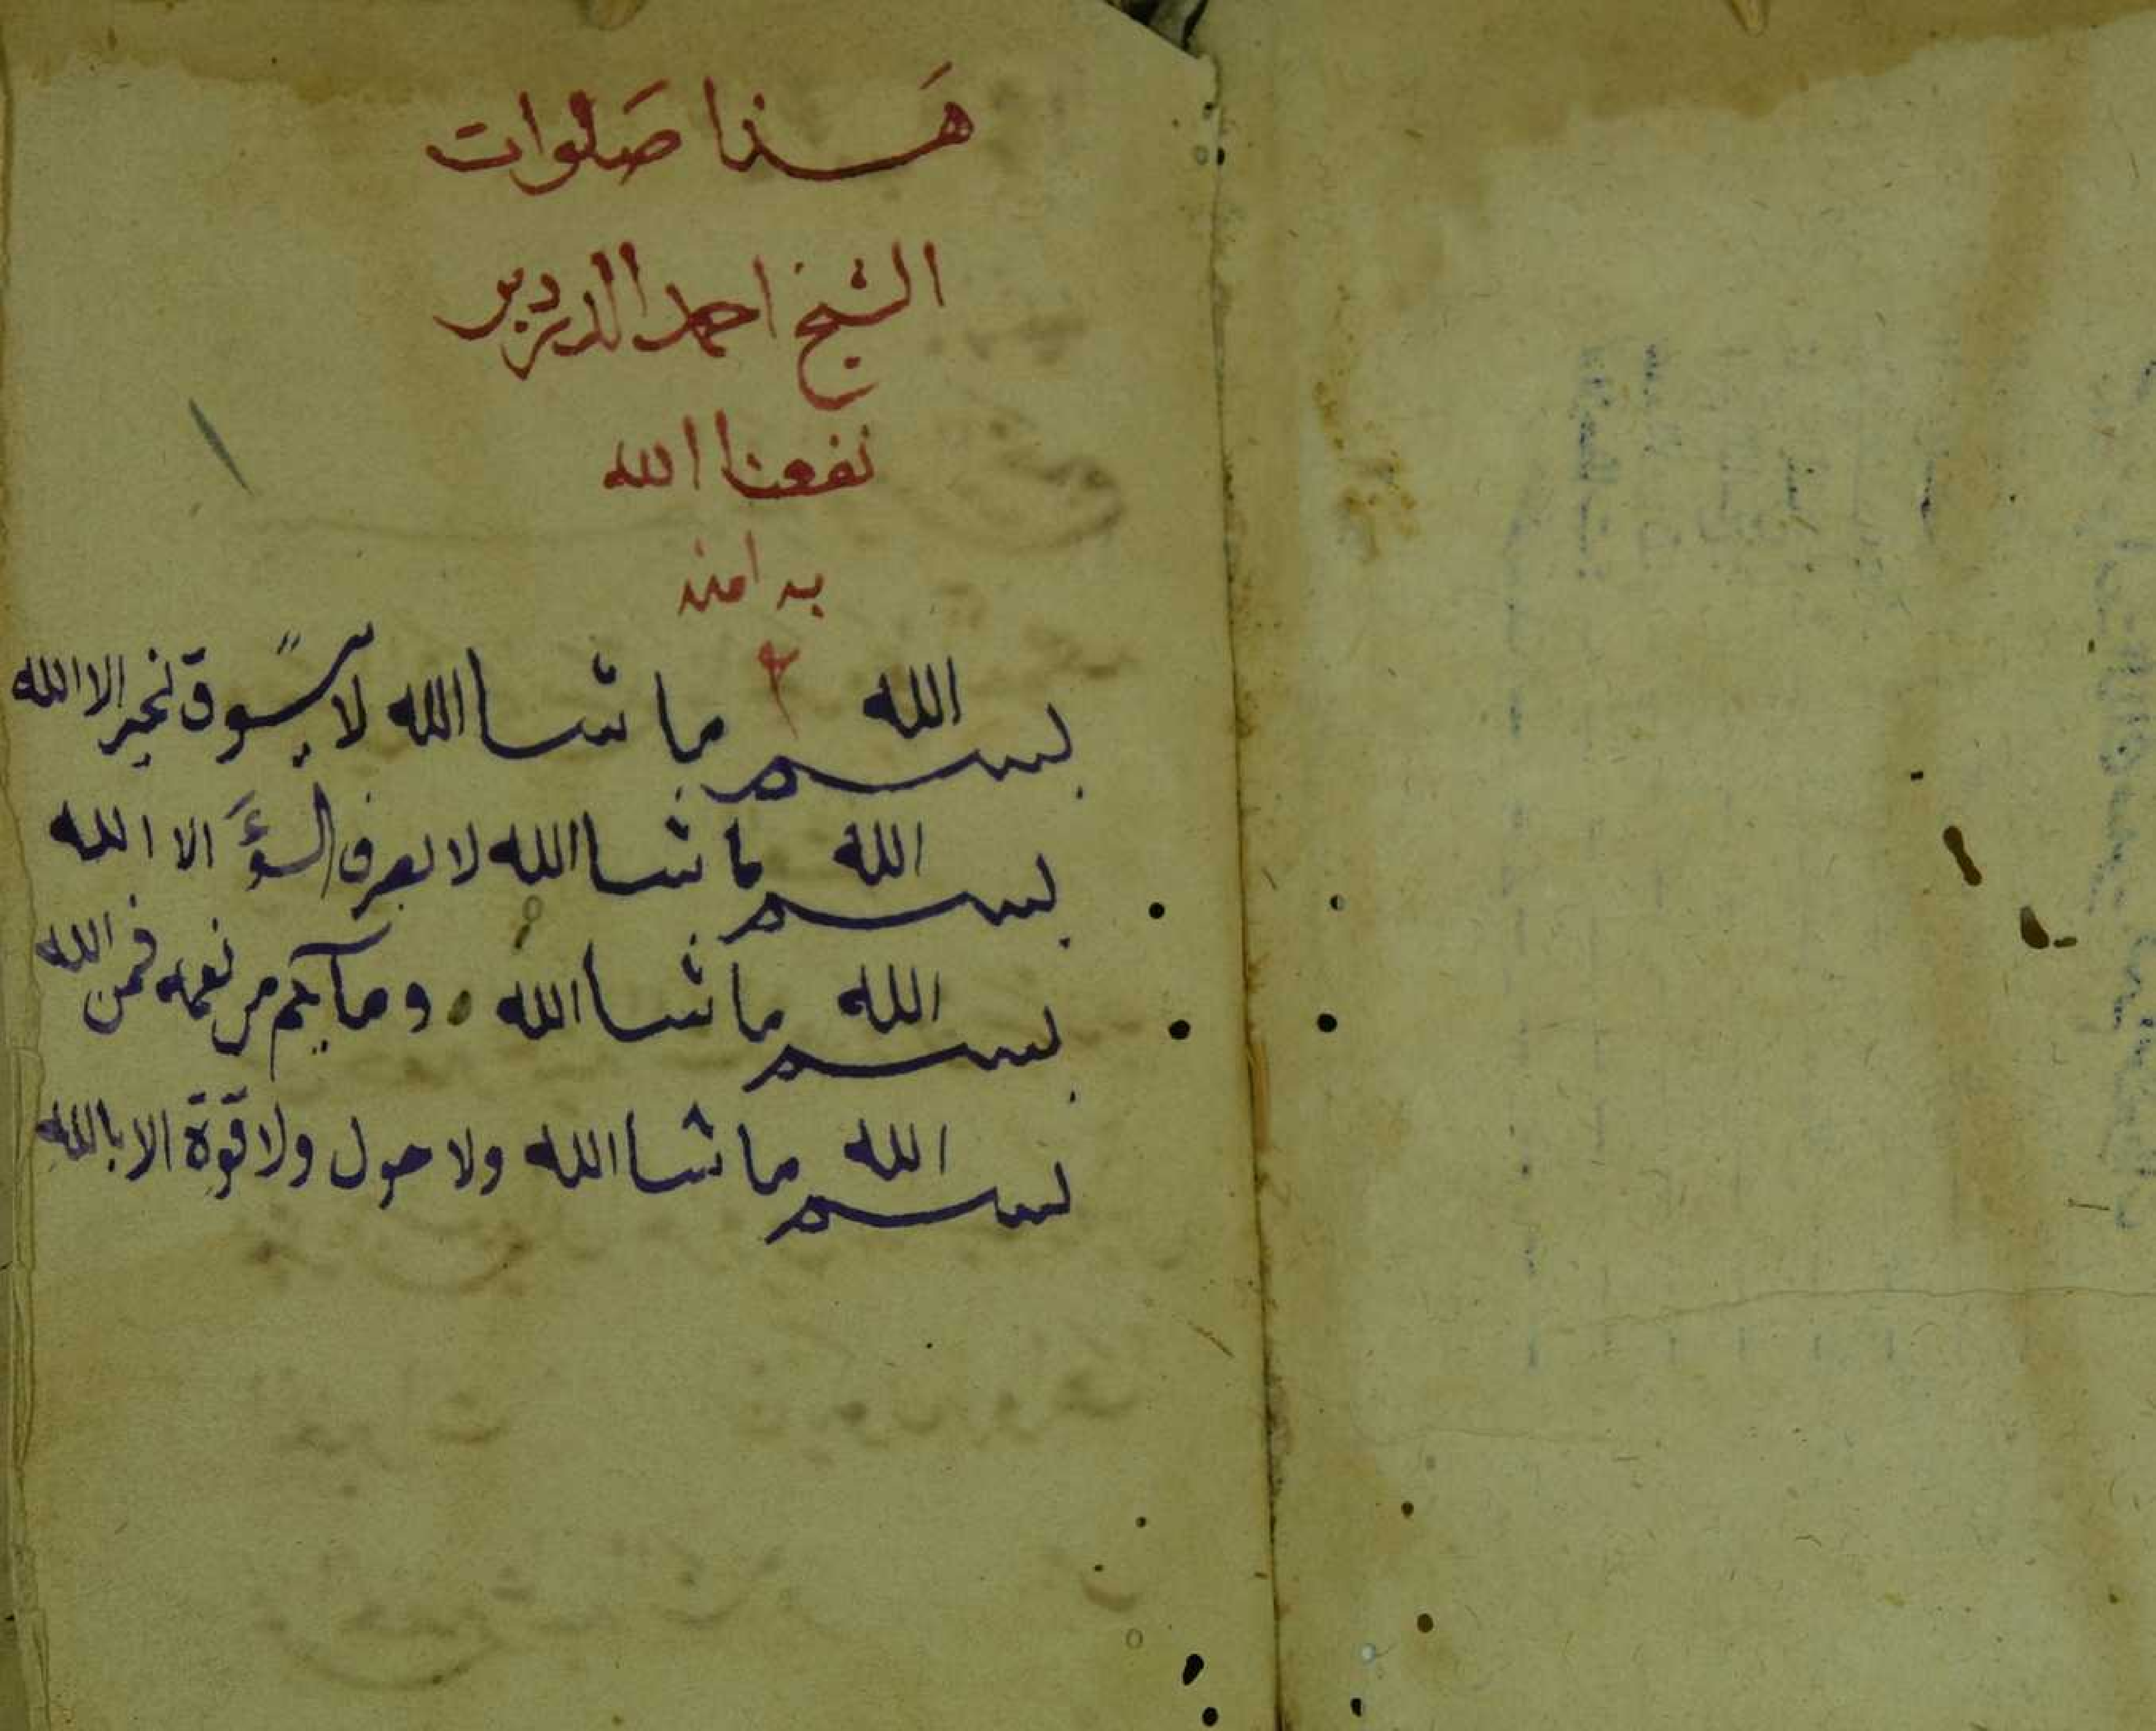 هَذا صَلوات
الشيخ احمد الدردير
نفعنا الله
به امين
٢
بسم الله ما شا الله لا يسوق الخير الا الله
بسم الله ما شا الله لا يصرف السؤَ الا الله
بسم الله ما شا الله وما بكم من نعمه فمن الله
بسم الله ما شا الله ولا حول ولا قوة الا بالله